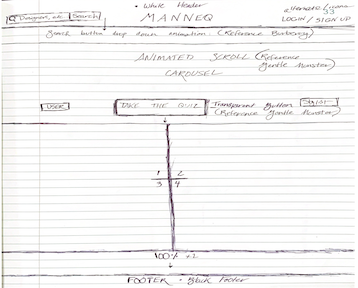 • White Header
Designers, etc. Search
MANNEQ
alternate / name
LOGIN / SIGN UP
Search button drop down animation: (Reference Burberry)
ANIMATED SCROLL (Reference
Gentle Monster)
CAROUSEL
USER
TAKE THE QUIZ
Transparent Button
Stylist
(Reference Gentle Monster)
1 2
3 4
100%
FOOTER • Black Footer